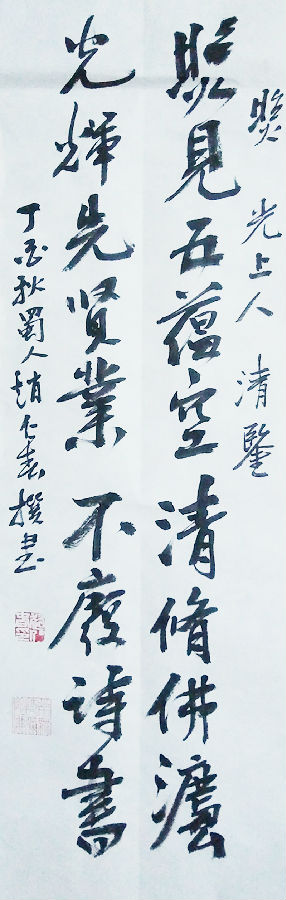 照光上人清鑒
照見五蘊空清脩佛灋
光輝先贤業不廢詩書
丁酉秋蜀人趙仁春撰書